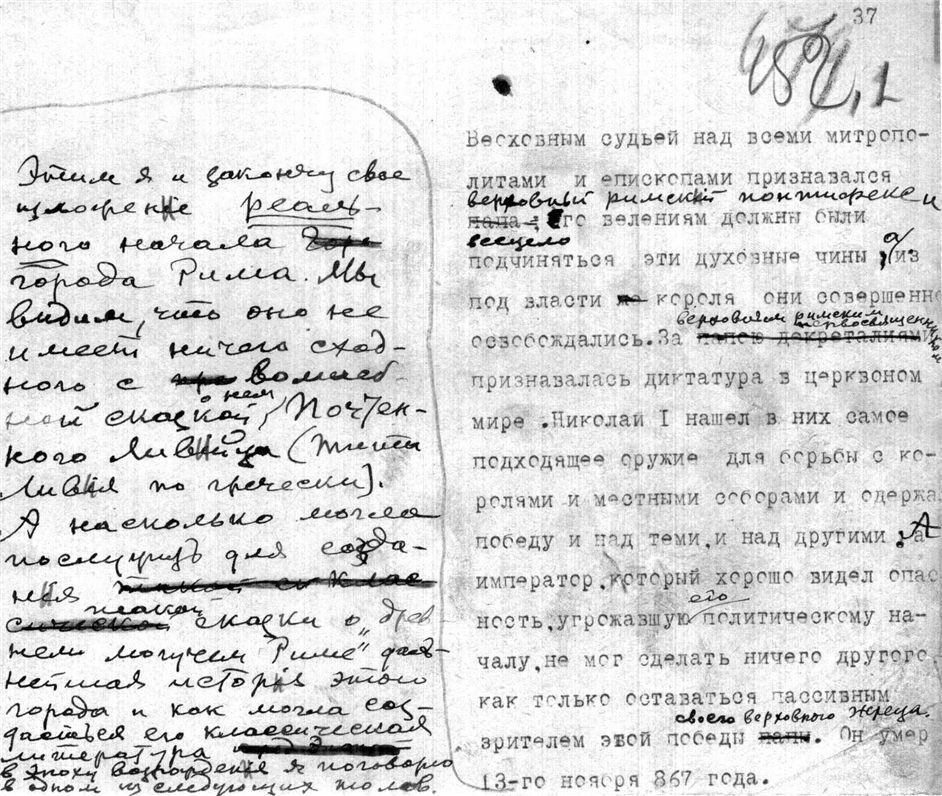 37
Этим я и закончу свое
изложение реаль-
ного начала
города Рима. Мы
видим, что оно не
имеет ничего сход-
ного с волшеб-
ной сказкой о нем Почтен-
ного Ливийца (Тита
Ливия по гречески).
А насколько могла
послужить для созда-
ния
такой сказки о древ-
нем могучем "Риме" даль-
нейшая история этого
города и как могла соз-
даться его классическая
литература
в эпоху возрождения я поговорю
в одном из следующих томов.
Весховным судьей над всеми митропо-
литами и епископами признавался
верховный римский понтифекс и
папа; его велениям должны были
всецело
подчиняться эти духовные чины, а из
под власти короля они совершенно
верховным римским первосвященником
освобождались. За папою декреталиями
признавалась диктатура в церквоном
мире. Николай I нашел в них самое
подходящее оружие для борьбы с ко-
ролями и местными соборами и одержа
победу и над теми, и над другими. А
император, который хорошо видел опас
его
ность, угрожавшую политическому на-
чалу, не мог сделать ничего другого,
как только оставаться пассивным
своего верховного жреца.
зрителем этой победы папы. Он умер
13-го ноября 867 года.